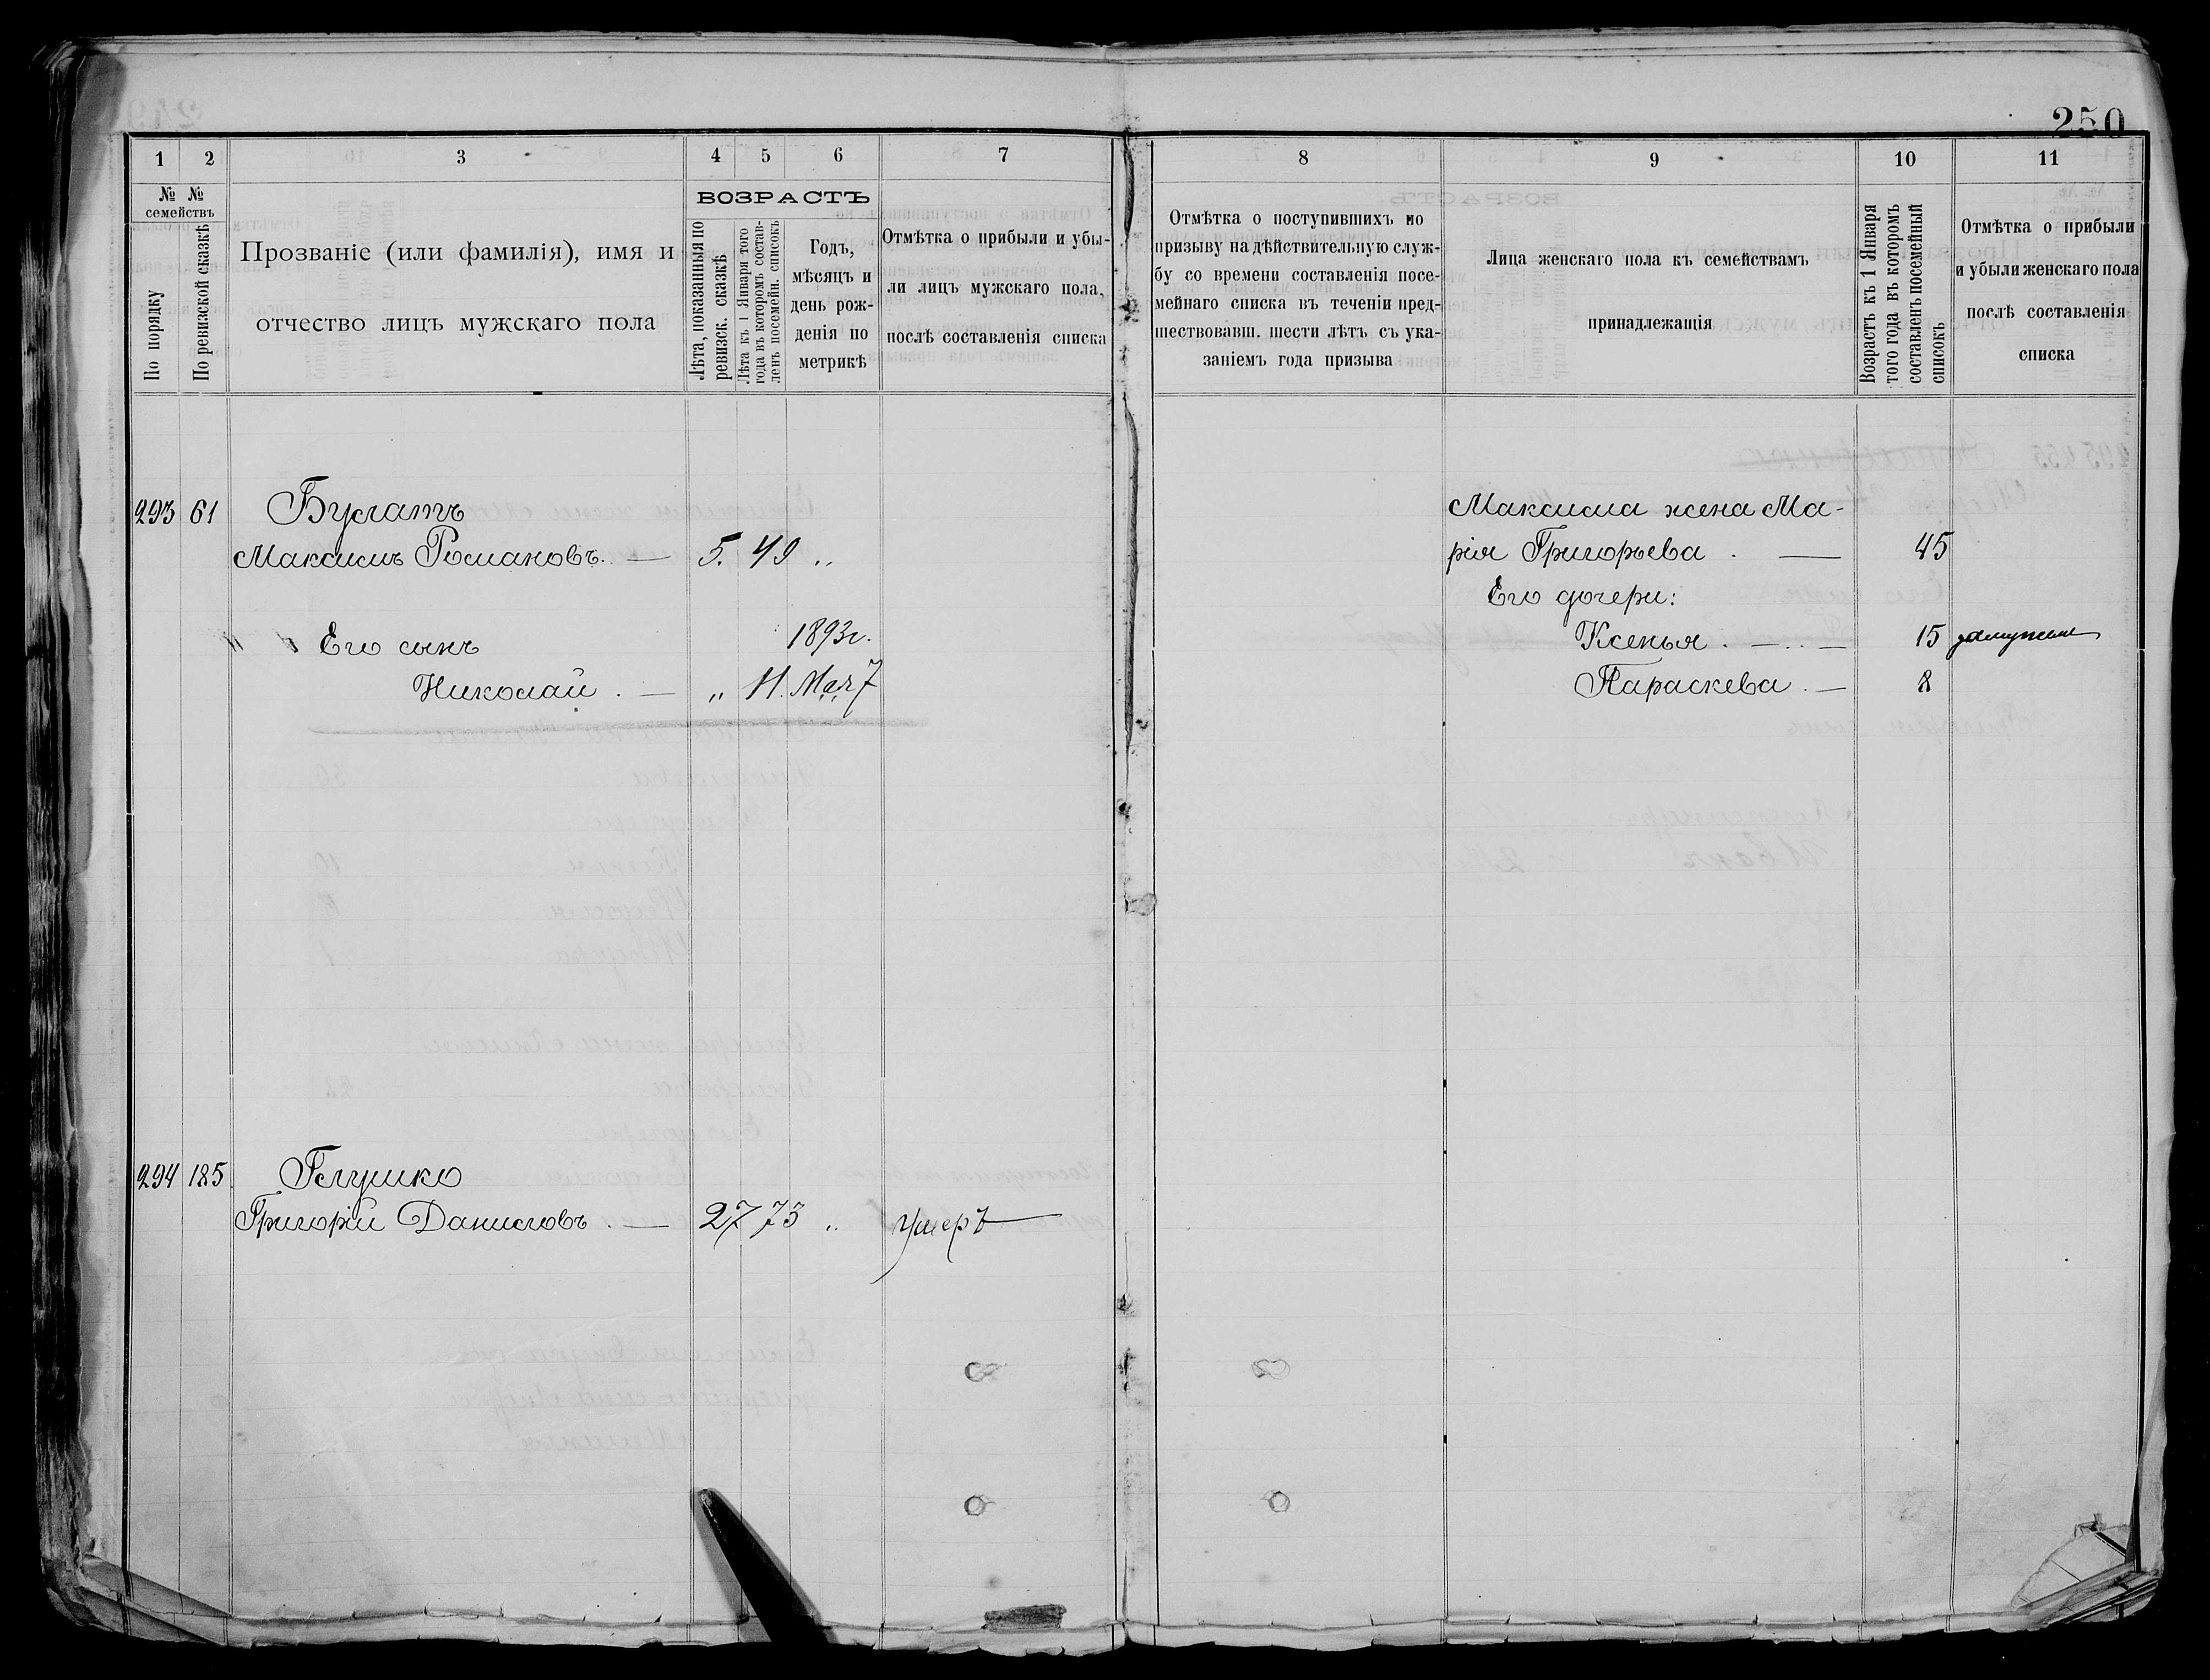 250
1 2 3 4 5 6 7
№ № семействъ
По порядку
По ревизской сказкѣ
Прозваніе (или фамилія), имя и
отчество лицъ мужскаго пола
ВОЗРАСТЪ
Лѣта, показанныя по
ревизск. сказкѣ
Лѣта къ 1 Января того
года въ которомъ состав-
ленъ посемейн. списокъ
Годъ,
мѣсяцъ и
день рож-
денія по
метрикѣ
Отмѣтка о прибыли и убы-
ли лицъ мужскаго пола,
послѣ составленія списка
293 61 Булатъ
Максимъ Романовъ. — 5. 49 „
Его сынъ 1893г.
Николай . — „ 11. Мая 7
294 185 Глушко
Григорій Даниловъ . — 27 73 „ умеръ
8 9 10 11
Отмѣтка о поступившихъ по
призыву на дѣйствительную служ-
бу со времени составленія посе-
мейнаго списка въ теченіи пред-
шествовавш. шести лѣтъ съ ука-
заніемъ года призыва
Лица женскаго пола къ семействамъ
принадлежащія
Возрастъ къ 1 Января
того года въ которомъ
составленъ посемейный
списокъ
Отмѣтка о прибыли
и убыли женскаго пола
послѣ составленія
списка
Максима жена Ма-
рія Григорьева . — 45
Его дочери:
Ксенья . — 15 замужем
Параскева . — 8